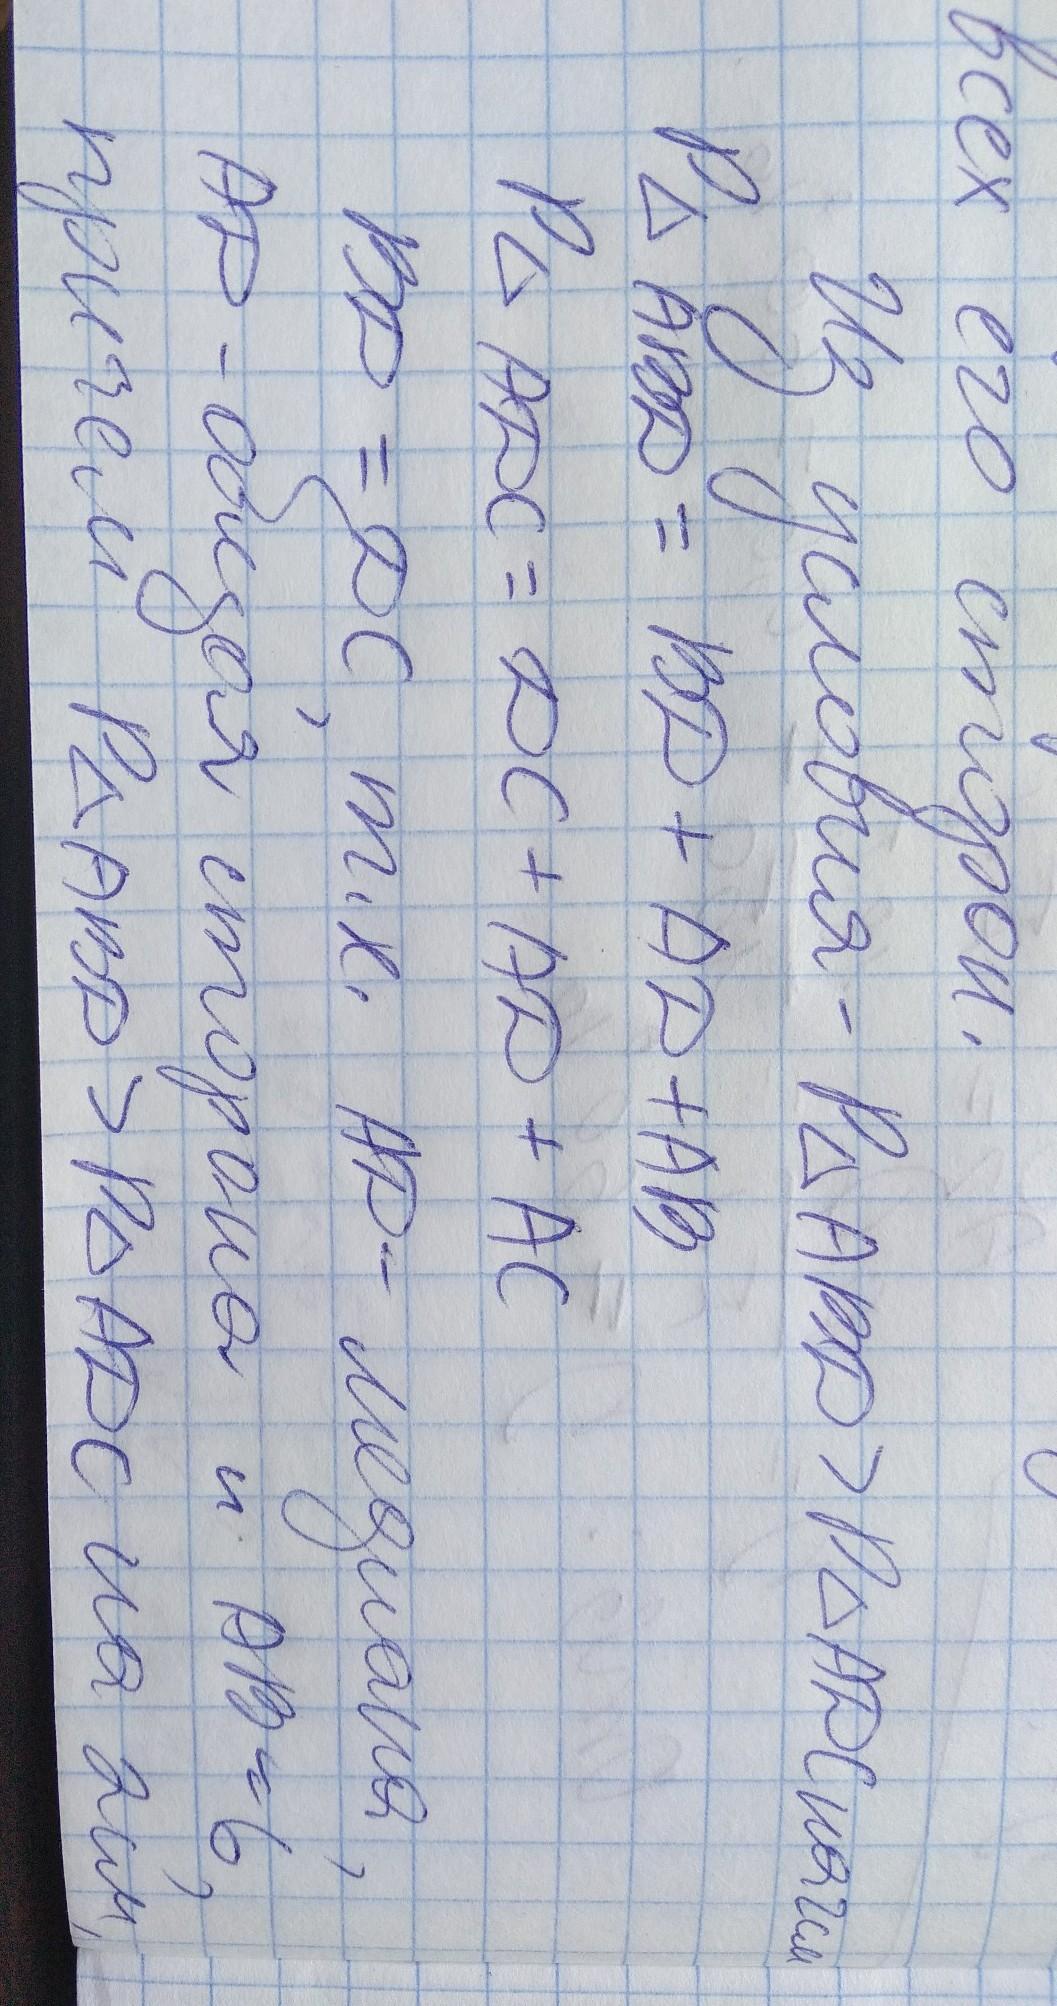 всех его сторон.
Из условия - P△ABD > P△ADC на 2см
P△ABD = BD + AD + AB
P△ADC = DC + AD + AC
BD = DC, т.к. AD - медиана,
AD - общая сторона и AB = 6,
причем P△ABD > P△ADC на 2см,